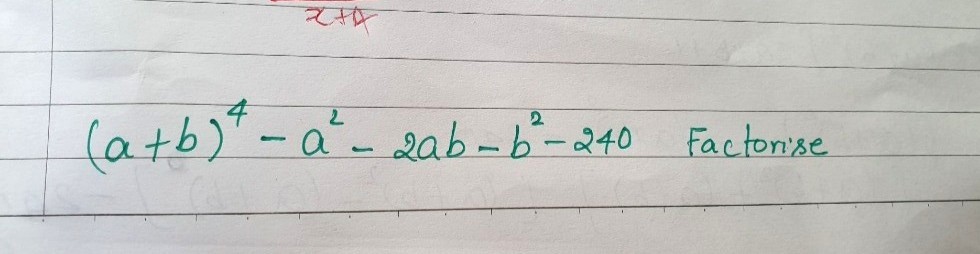 x+4
(a+b)⁴ - a² - 2ab - b² - 240 Factorise